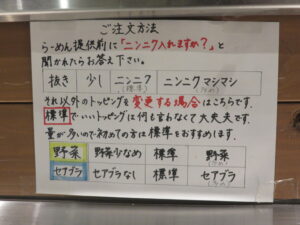 ご注文方法
らーめん提供前に「ニンニク入れますか?」と
聞かれたらお答え下さい。
抜き 少し ニンニク(標準) ニンニクマシマシ
それ以外のトッピングを変更する場合はこちらです。
標準でいいトッピングは何も言わなくて大丈夫です。
量が多いので初めての方は標準をおすすめします。
野菜 野菜少なめ 標準 野菜
セアブラ セアブラなし 標準 セアブラ